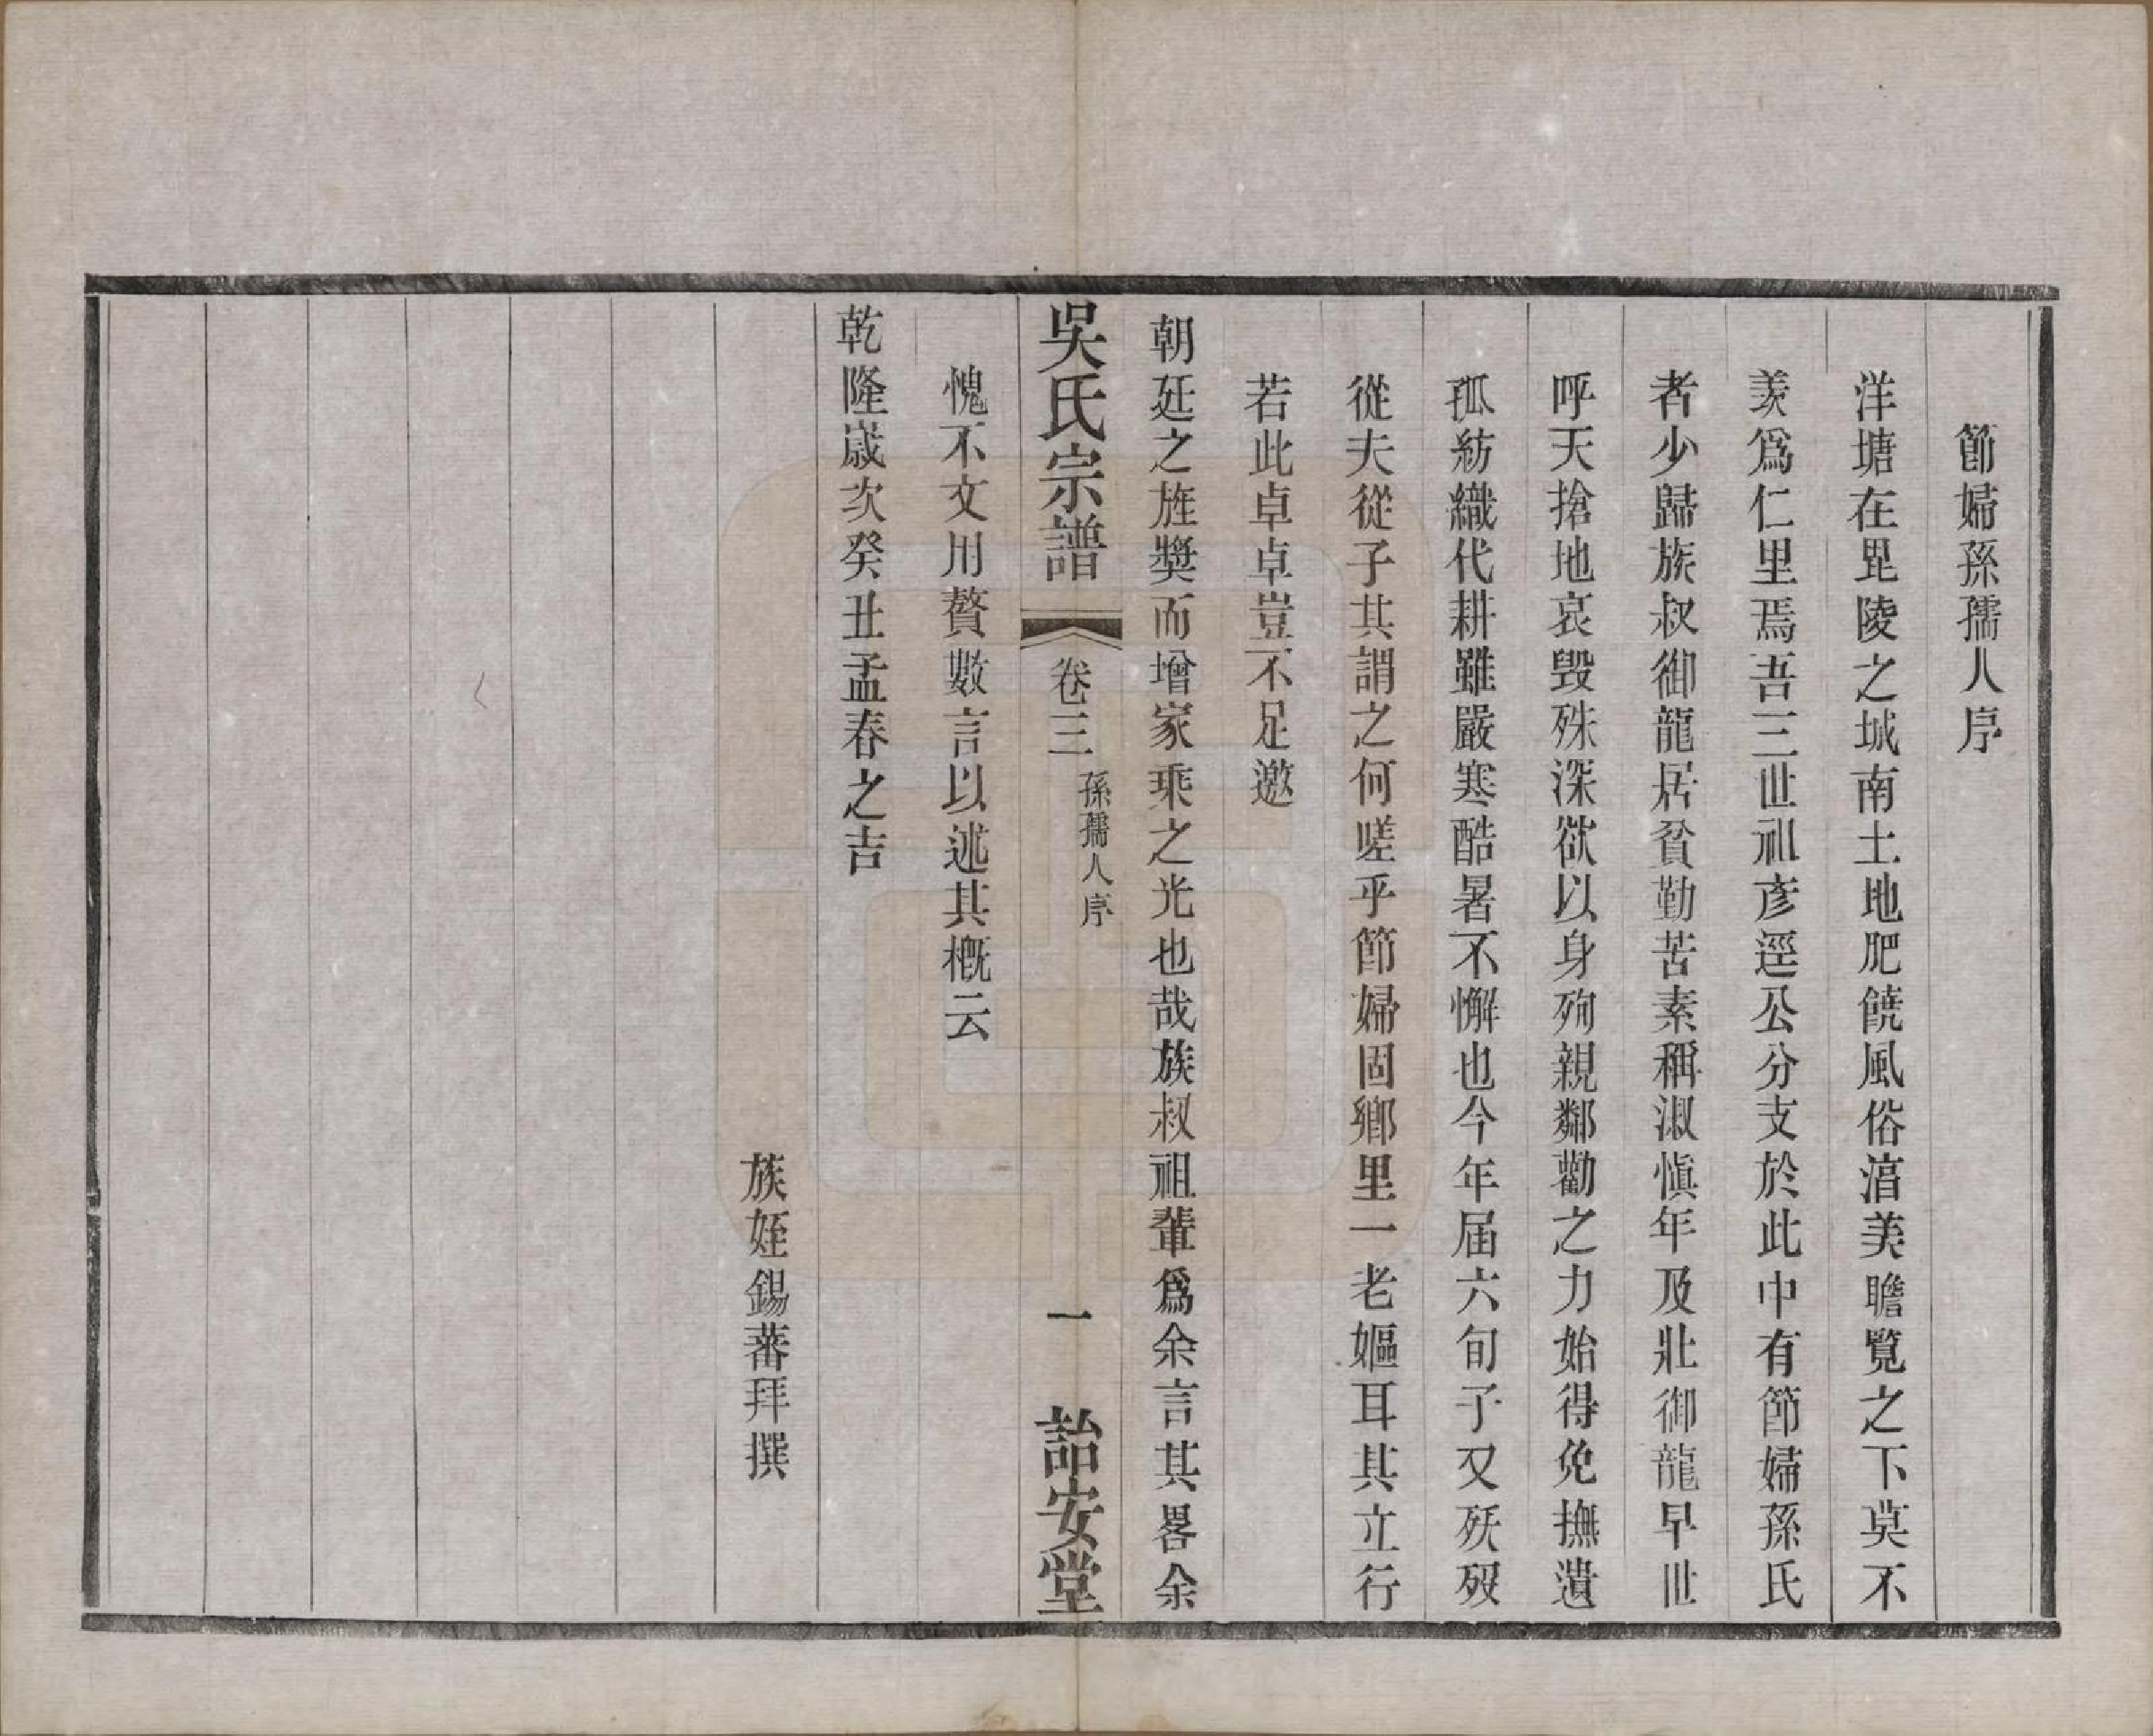 節婦孫孺人序
洋塘在毘陵之城南土地肥饒風俗湻美瞻覽之下莫不
羡爲仁里焉吾三世祖彥逕公分支於此中有節婦孫氏
者少歸族叔御龍居貧勤苦素稱淑愼年及壯御龍早世
呼天搶地哀毁殊深欲以身殉親鄰勸之力始得免撫遺
孤紡織代耕雖嚴寒酷暑不懈也今年届六旬子又殀歿
從夫從子其謂之何嗟乎節婦固鄕里一老嫗耳其立行
若此卓卓豈不足邀
朝廷之旌獎而增家乘之光也哉族叔祖輩爲余言其畧余
吳氏宗譜 卷三 孫孺人序 一 詒安堂
愧不文用贅數言以述其槪云
乾隆歲次癸丑孟春之吉
族姪錫蕃拜撰